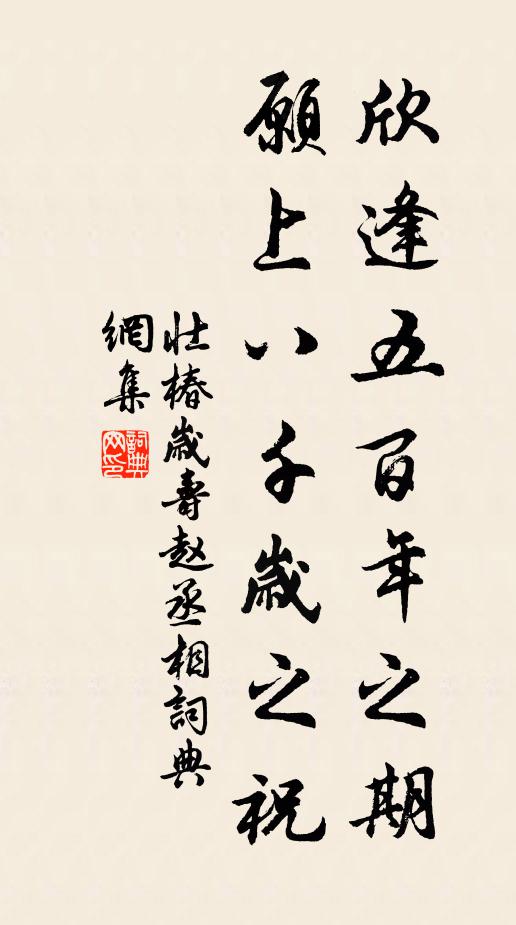 欣逢五百年之期
願上八千歲之祝
壯椿歲壽赵丞相詞典
網集
詞典網印